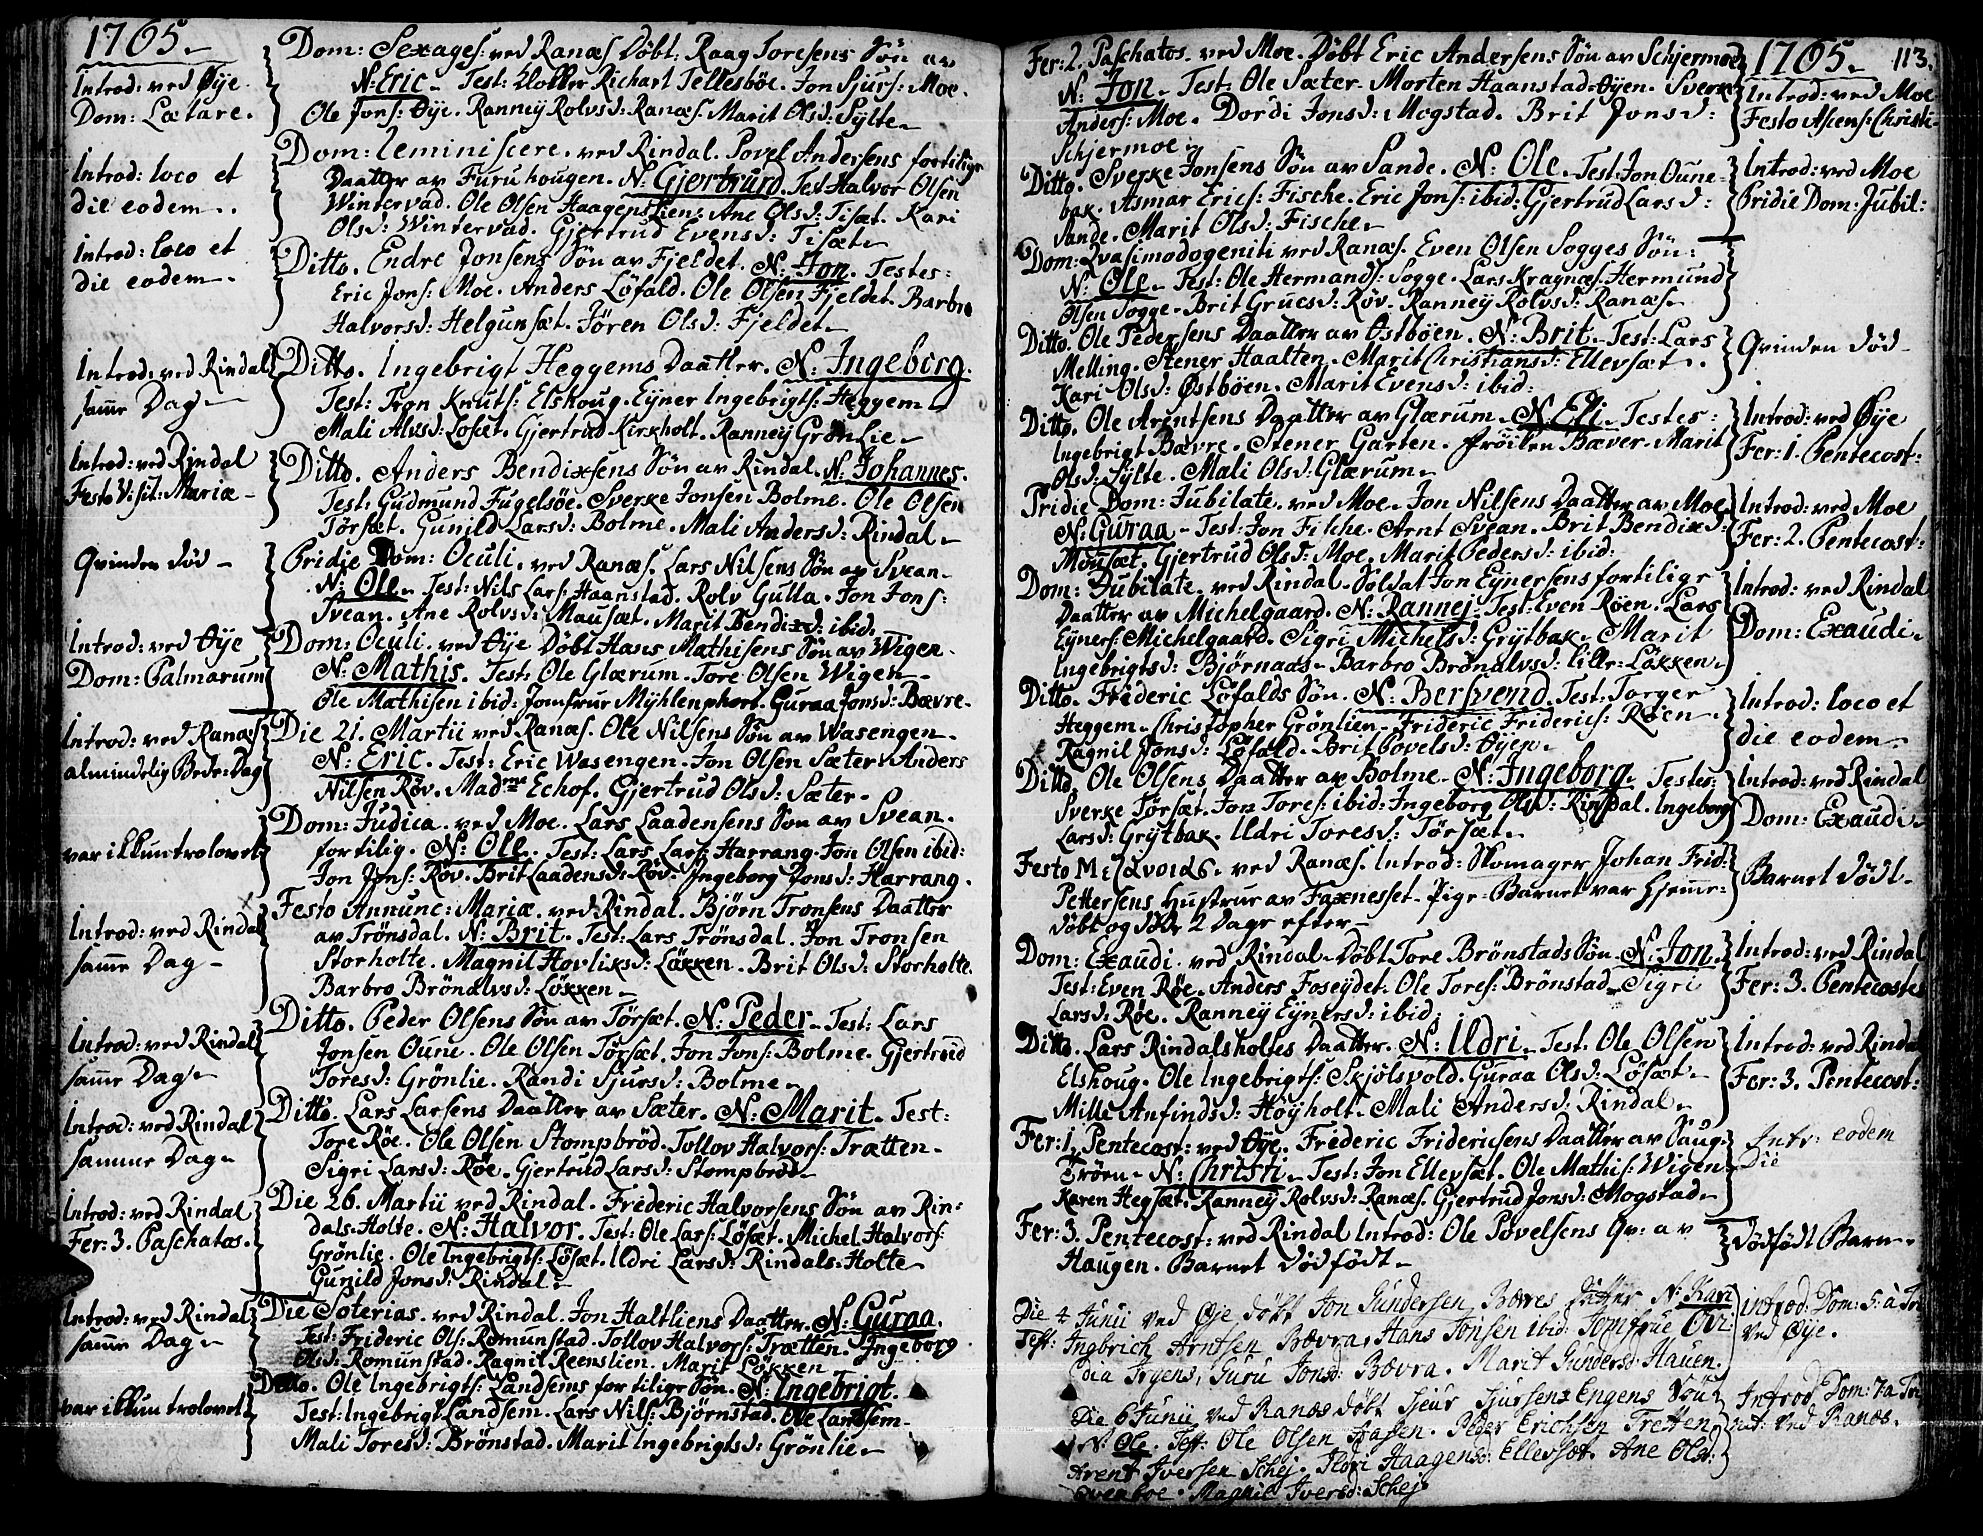 1765.
Introd: ved Øye
Dom: Lætare.
Dom: Sexages: ved Ranæs Døbt. Raag Toresens Søn av
N: Eric. Test: Klokker Richart Tellesbøe. Jon Sjurs: Moe.
Ole Jons: Øye. Ranney Rolvsd: Ranæs. Marit Olsd: Sylte.
Introd: loco et
die eodem.
Dom: Reminiscere. ved Rindal. Povel Andersens fortilige
Daatter av Furuhougen. N: Gjertrurd. Test: Halvor Olsen
Wintervad. Ole Olsen Haagenslien. Ane Olsd: Tisæt. Kari
Olsd: Wintervad. Gjertrud Evensd: Tisæt.
Introd: loco et
die eodem.
Ditto. Endre Jonsens Søn av Fjeldet. N: Jon. Testes:
Eric Jons: Moe. Anders Löfald. Ole Olsen Fjeldet. Barbro
Halvorsd: Helgunsæt. Jören Olsd: Fjeldet.
Introd: ved Rindal
same Dag
Ditto. Ingebrigt Heggems Daatter. N: Ingeborg.
Test: Tron Knuts: Elshoug. Eyner Ingebrigts: Heggem
Mali Alvsd: Losæt. Gjertrud Kirkholt. Ranney Grönlie.
Introd: ved Rindal
Festo Visit: Mariæ
Ditto. Anders Bendixsens Søn av Rindal. N: Johannes.
Test: Gudmund Fugelsöe. Sverke Jonsen Bolme. Ole Olsen
Törsæt. Gunild Larsd: Bolme. Mali Andersd: Rindal.
Qvinden död
Pridie Dom: Oculi. ved Ranæs. Lars Nilsens Søn av Svean.
N: Ole. Test: Nils Lars: Haanstad. Rolv Gulla. Jon Jons:
Svean. Ane Rolvsd: Mausæt. Marit Bendixd: ibid:
Introd: ved Øye
Dom: Palmarum
Dom: Oculi. ved Øye Døbt Hans Mathisens Søn av Wigen.
N: Mathis. Test: Ole Glærum. Tore Olsen Wigen
Ole Mathisen ibid: Jomfrue Myhlenphort. Guraa Jonsd: Bævre.
Introd: ved Ranæs
almindelig Bede-Dag
Die 21. Martii ved Ranæs. Ole Nilsens Søn av Wasengen.
N: Eric. Test: Eric Wasengen. Jon Olsen Sæter. Anders
Nilsen Röv. Madme Echof. Gjertrud Olsd: Sæter.
var ikkun trolovet
Dom: Judica. ved Moe. Lars Laadensens Søn av Svean.
fortilig. N: Ole. Test: Lars Lars: Harrang. Jon Olsen ibid:
Jon Jons: Röv. Brit Laadensd: Röv. Ingeborg Jonsd: Harrang.
Introd: ved Rindal
same Dag
Festo Annunc: Mariæ. ved Rindal. Bjørn Tronsens Daatter
av Trönsdal. N: Brit. Test: Lars Trönsdal. Jon Tronsen
Storholte. Magnil Hovliksd: Løkken. Brit Olsd: Storholte.
Barbro Brönalvsd: Løkken
Introd: ved Rindal
same Dag
Ditto. Peder Olsens Søn av Törsæt. N: Peder. Test: Lars
Jonsen Oune. Ole Olsen Törsæt. Jon Jons: Bolme. Gjertrud
Toresd: Grönlie. Randi Sjursd: Bolme.
Introd: ved Rindal
samme Dag
Ditto. Lars Larsens Daatter av Sæter. N: Marit. Test:
Tore Röe. Ole Olsen Stompbröd. Tollov Halvors: Trætten.
Sigri Larsd: Röe. Gjertrud Larsd: Stompbröd
Introd: ved Rindal
Fer: 3. Paschatos.
Die 26. Martii ved Rindal. Frederic Halvorsens Søn av Rin-
dals-Holte. N: Halvor. Test: Ole Lars: Løsæt. Michel Halvors:
Grönlie. Ole Ingebrigts: Løsæt. Ildri Larsd: Rindals-Holte
Gunild Jonsd: Rindal.
Introd: ved Rindal
same Dag
Die Soterias. ved Rindal. Jon Haltliens Daatter. N: Guraa.
Test: Frideric Ols: Romunstad. Tollov Halvors: Trætten. Ingeborg
Olsd: Romunstad. Ragnil Reenslien. Marit Løkken
var ikkun trolovet
Ditto. Ole Ingebrigts: Landsems fortilige Søn. N: Ingebrigt.
Test: Ingebrigt Landsem. Lars Nils: Bjørnstad. Ole Landsem
Mali Toresd: Brönstad. Marit Ingebrigtsd: Grönlie
1765. 113.
Fer: 2. Paschatos. ved Moe. Døbt Eric Andersens Søn av Schjermoe
N: Jon. Test: Ole Sæter. Morten Haanstad-Øyen. Sverke
Anders: Moe. Dordi Jonsd: Mogstad. Brit Jonsd:
Schjermoe
Introd: ved Moe
Festo Ascens: Christi
Ditto. Sverke Jonsens Søn av Sande. N: Ole. Test: Jon Oune-
bak. Asmar Erics: Fische. Eric Jons: ibid: Gjertrud Larsd:
Sande. Marit Olsd: Fische
Introd: ved Moe
Pridie Dom: Jubil:
Dom: Qvasimodogeniti ved Ranæs. Even Olsen Sogges Søn:
N: Ole. Test: Ole Hermands: Sogge. Lars Kragnæs. Hermund
Olsen Sogge. Brit Gruesd: Röv. Ranney Rolvsd: Ranæs.
Ditto. Ole Pedersens Daatter av Østböen. N: Brit. Test: Lars
Melling. Stener Haalten. Marit Christiansd: Ellevsæt.
Kari Olsd: Østböen. Marit Evensd: ibid:
Qvinden död
Ditto. Ole Arentsens Daatter av Glærum. N: Eli. Testes:
Ingebrigt Bævre. Stener Garten. Fröilen Bæver. Marit
Olsd: Sylte. Mali Olsd: Glærum.
Introd: ved Øye
Fer: 1. Pentecost:
Pridie Dom: Jubilate. ved Moe. Jon Nilsens Daatter av Moe
N: Guraa. Test: Jon Fische. Arnt Svean. Brit Bendixd:
Mousæt. Gjertrud Olsd: Moe. Marit Pedersd: ibid:
Introd: ved Moe
Fer: 2. Pentecost:
Dom: Jubilate. ved Rindal. Soldat Jon Eynersens fortilige
Daatter av Michelgaard. N: Ranney. Test: Even Röen. Lars
Eyners: Michelgaard. Sigri Michelsd: Grytbak. Marit
Ingebrigtsd: Bjørnaas. Barbro Brönalvsd: Lille-Løkken.
Introd: ved Rindal
Dom: Exaudi
Ditto. Frideric Löfalds Søn. N: Bersvend. Test: Torger
Heggem. Christopher Grönlien. Frideric Friderics: Röen
Ragnil Jonsd: Löfald. Brit Povelsd: Øyen.
Introd: loco et
die eodem.
Ditto. Ole Olsens Daatter av Bolme. N: Ingeborg. Testes:
Sverke Törsæt. Jon Tores: ibid: Ingeborg Olsd: Rindal. Ingeborg
Larsd: Grytbak. Ildri Toresd: Törsæt.
Introd: ved Rindal
Dom: Exaudi
Festo ved Ranæs. Introd: Skomager Johan Frid:
Pettersens Hustrue av Faxnesset. Pige-Barnet var hjeme-
døbt og døde 2 Dage efter
Barnet dødt
Dom: Exaudi. ved Rindal. Døbt Tore Brönstads Søn. N: Jon.
Test: Even Röe. Anders Foseydet. Ole Tores: Brönstad. Sigri
Larsd: Röe. Ranney Eynersd: ibid:
Introd: ved Rindal
Fer: 3. Pentecostes
Ditto. Lars Rindalsholtes Daatter. N: Ildri. Test: Ole Olsen
Elshoug. Ole Ingebrigts: Skjölsvold. Guraa Olsd: Løsæt.
Mille Anfindsd: Høyholt. Mali Andersd: Rindal.
Introd: ved Rindal
Fer: 3. Pentecost:
Fer: 1. Pentecost: ved Øye. Frederic Fridericsens Daatter av Saug-
Tröen. N: Christi. Test: Jon Ellevsæt. Ole Mathis: Wigen
Karen Hegsæt. Ranney Rolvsd: Ranæs. Gjertrud Jonsd: Mogstad.
Intr: eodem
Die
Fer: 3. Pentecost: ved Rindal Introd: Ole Povelsens Qv: av
Haugen. Barnet dödfödt.
dödfödt Barn.
Die 4 Junii ved Øje døbt Jon Gundersen Bævres datter N: Kari
Test: Ingbrich Arntsen Bævra, Hans Jonsen ibid: Jomfrue Ovi-
dia Tryens, Guru Jonsd: Bævra. Marit Gundersd: Hauen.
introd: Dom: 5: a Tri:
ved Øye.
Die 6 Junii ved Ranæs døbt Sjeur Sjursens Engens Søn
N: Ole. Test: Ole Olsen Hassen. Peder Erichsen Tretten
Arent Iversen Schej. Ildri Haagensd: Ellevsæt. Ane Olsd:
Svenboe. Magnil Iversd: Schej
Introd: Dom: 7. a Tri
nit: ved Ranæs.